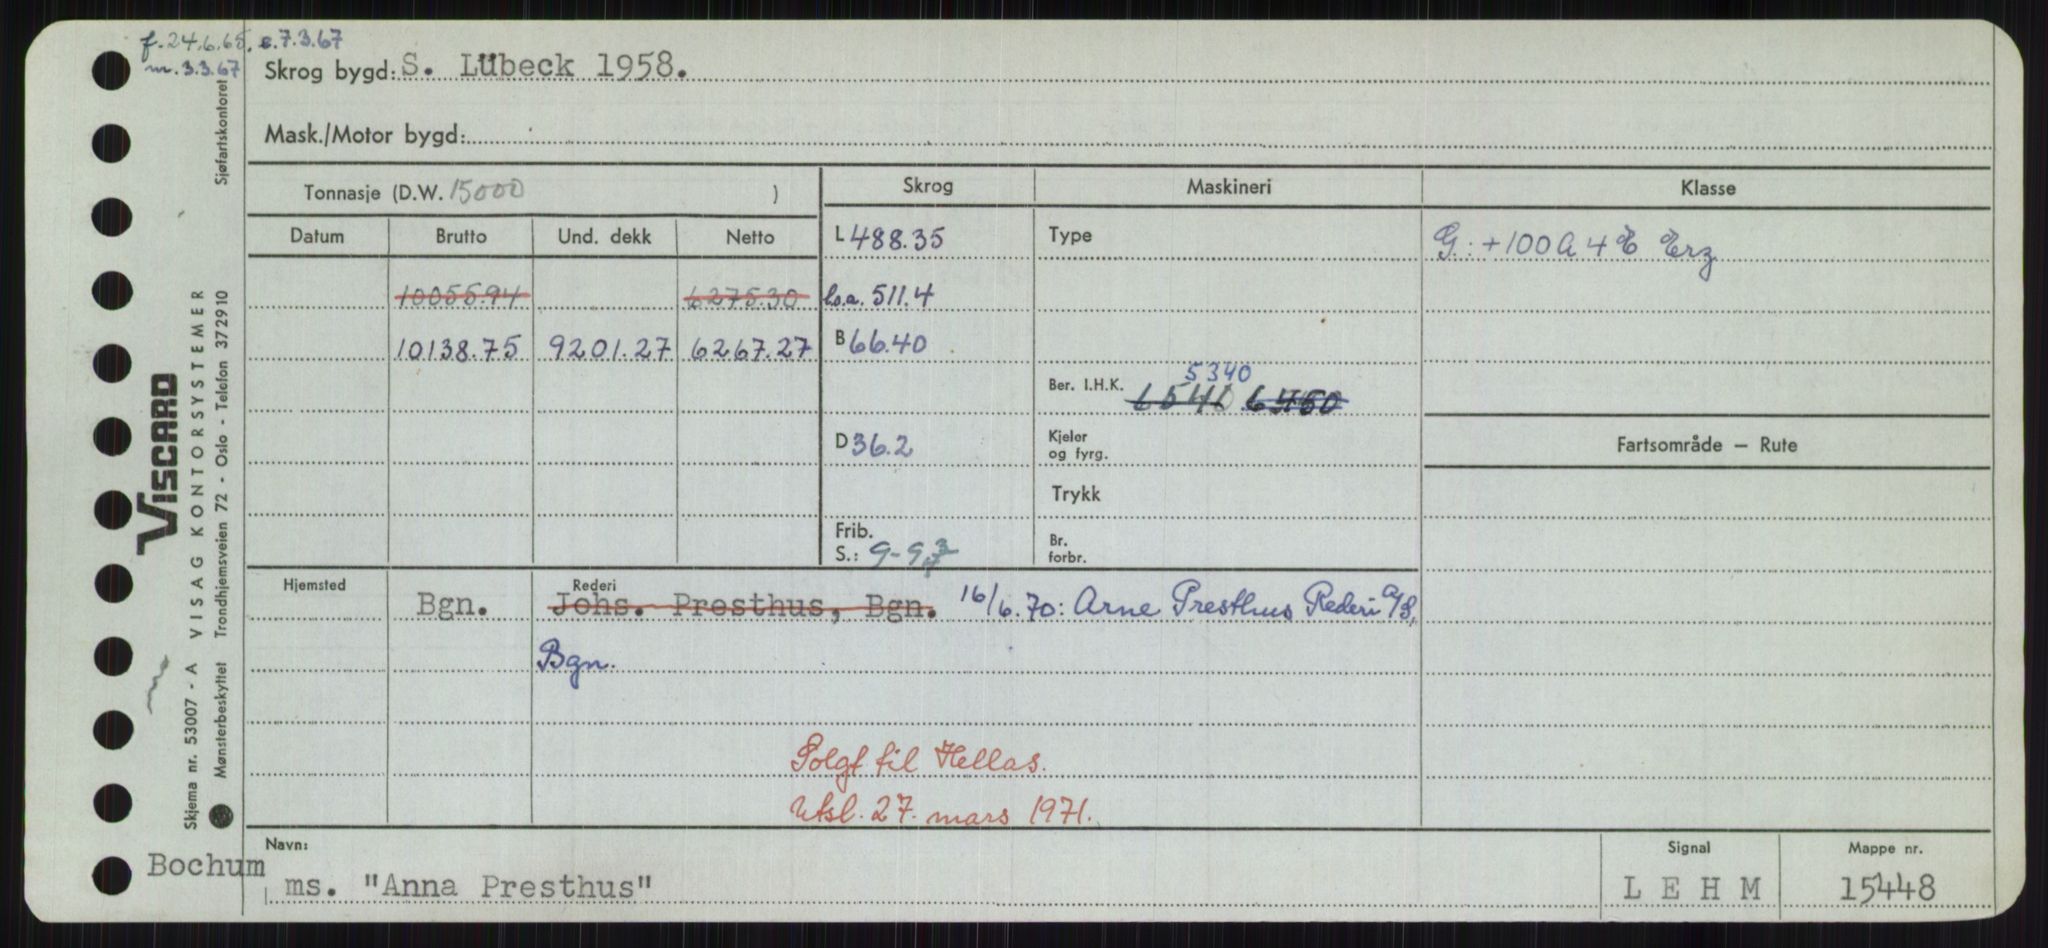 f. 24.6.65. e. 7.3.67
m. 3.3.67
Skrog bygd: S. Lübeck 1958.
Mask./Motor bygd:
Tonnasje (D.W. 15000 )
Skrog Maskineri Klasse
Datum Brutto Und. dekk Netto
L 488.35
Type
G: +100A 4 E Erz
10055.94 6275.30
l.o.a. 511.4
10138.75 9201.27 6267.27
B 66.40
5340
Ber. I.H.K. 6540 6450
D 36.2
Kjeler
og fyrg.
Fartsområde — Rute
Trykk
Frib.
S.: 9-9
Br.
forbr.
Hjemsted Rederi
Bgn. Johs. Presthus, Bgn. 16/6.70: Arne Presthus Rederi A/S,
Bgn.
Solgt til Hellas.
Utsl. 27. mars 1971.
Navn: Signal Mappe nr.
Bochum
ms. "Anna Presthus" L E H M 15448
Sjøfartskontoret
VISCARD
VISAG KONTORSYSTEMER
Trondhjemsveien 72 - Oslo - Telefon 372910
Skjema nr. 53007 - A
Mønsterbeskyttet